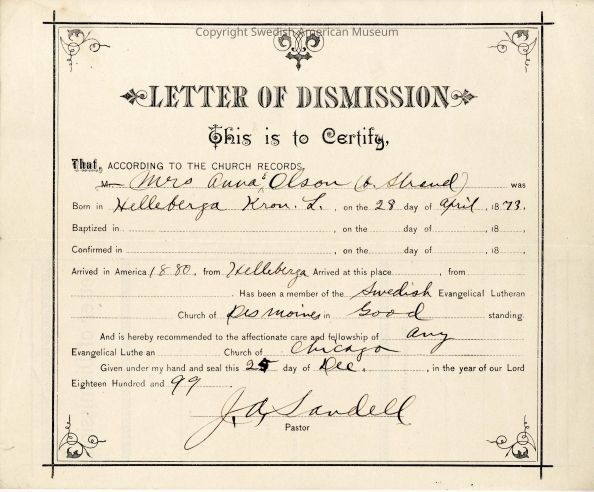 Copyright Swedish American Museum
LETTER OF DISMISSION
This is to Certify,
That, ACCORDING TO THE CHURCH RECORDS,
M Mrs Anna Olson (b. Strand) was
Born in Helleberga Kron. L., on the 28 day of April, 1873.
Baptized in , on the day of , 18 ,
Confirmed in , on the day of , 18 ,
Arrived in America 1880, from Helleberga Arrived at this place , from
Has been a member of the Swedish Evangelical Lutheran
Church of Des moines in Good standing.
And is hereby recommended to the affectionate care and fellowship of any
Evangelical Luthe an Church of Chicago
Given under my hand and seal this 25 day of Dec. , in the year of our Lord
Eighteen Hundred and 99
J. A. Sandell
Pastor